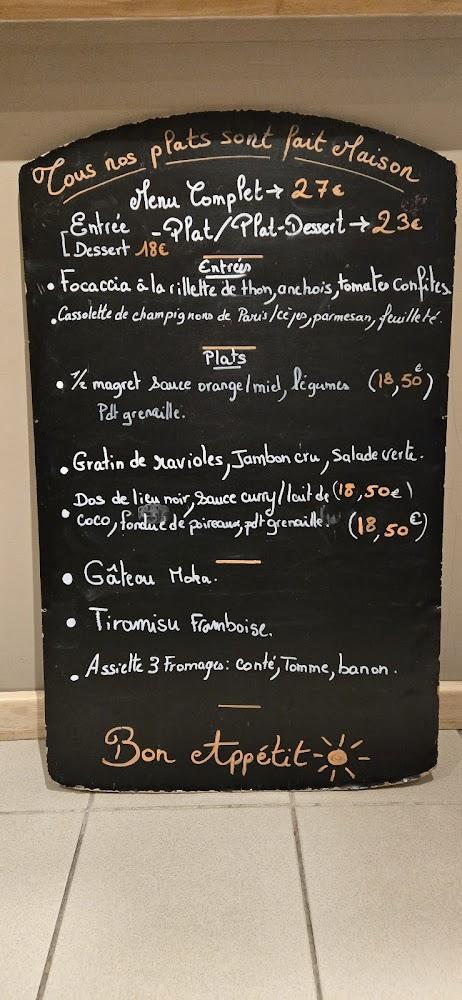 Tous nos plats sont fait Maison
Menu Complet → 27€
Entrée -Plat/Plat-Dessert → 23€
Dessert 18€
Entrées
• Focaccia à la rillette de thon, anchois, tomates confites
• Cassolette de champignons de Paris/cèpes, parmesan, feuilleté.
Plats
• 1/2 magret sauce orange/miel, légumes (18,50€)
Pdt grenaille.
• Gratin de ravioles, Jambon cru, Salade verte.
Dos de lieu noir, sauce curry/lait de (18,50€)
• coco, fondue de poireaux, pdt grenaille. (18,50€)
• Gâteau Moka.
• Tiramisu Framboise.
• Assiette 3 Fromages: conté, Tomme, banon.
Bon Appétit-